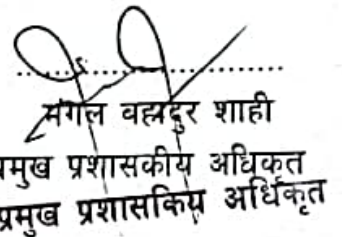 मंगल वहादुर शाही
प्रमुख प्रशासकीय अधिकृत
प्रमुख प्रशासकिय अधिकृत